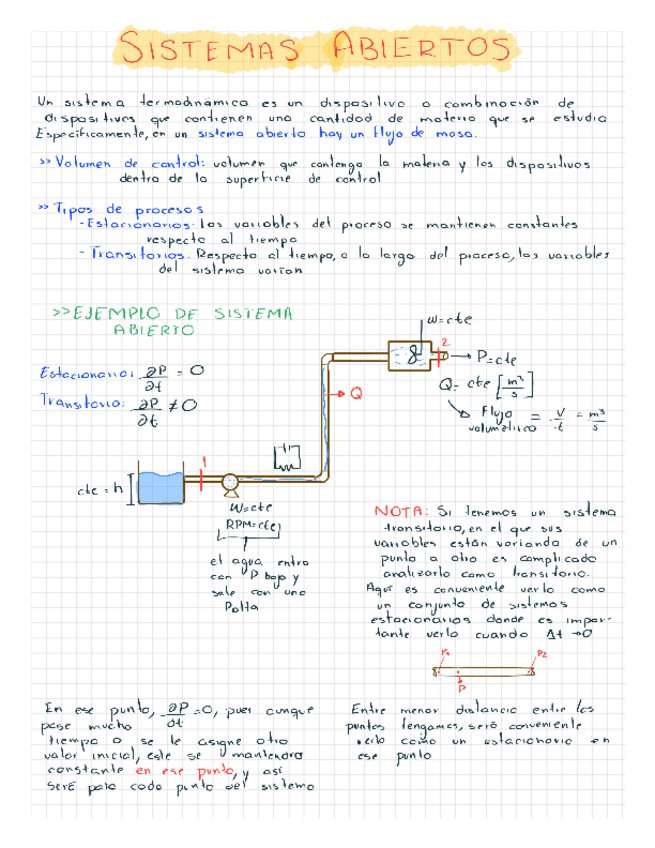 SISTEMAS ABIERTOS
Un sistema termodinámico es un dispositivo o combinación de
dispositivos que contienen una cantidad de materia que se estudia
Específicamente, en un sistema abierto hay un flujo de masa.
>> Volumen de control: volumen que contenga la materia y los dispositivos
dentro de la superficie de control
>> Tipos de procesos
- Estacionarios: las variables del proceso se mantienen constantes
respecto al tiempo
- Transitorios: Respecto al tiempo, a lo largo del proceso, las variables
del sistema varían
>> EJEMPLO DE SISTEMA
ABIERTO
Estacionario: ∂P/∂t = 0
Transitorio: ∂P/∂t ≠ 0
W=cte
2
P=cte
Q= cte [m³/s]
Flujo volumétrico = V/t = m³/s
Q
1
cte = h
W=cte
RPM=cte
el agua entra
con P baja y
sale con una
P alta
NOTA: Si tenemos un sistema
transitorio, en el que sus
variables están variando de un
punto a otro es complicado
analizarlo como transitorio.
Aquí es conveniente verlo como
un conjunto de sistemas
estacionarios donde es impor-
tante verlo cuando Δt →0
P1
P2
P
En ese punto, ∂P/∂t =0, pues aunque
pase mucho
tiempo o se le asigne otro
valor inicial, este se mantendrá
constante en ese punto, y así
será para cada punto del sistema
Entre menor distancia entre los
puntos tengamos, será conveniente
verlo como un estacionario en
ese punto